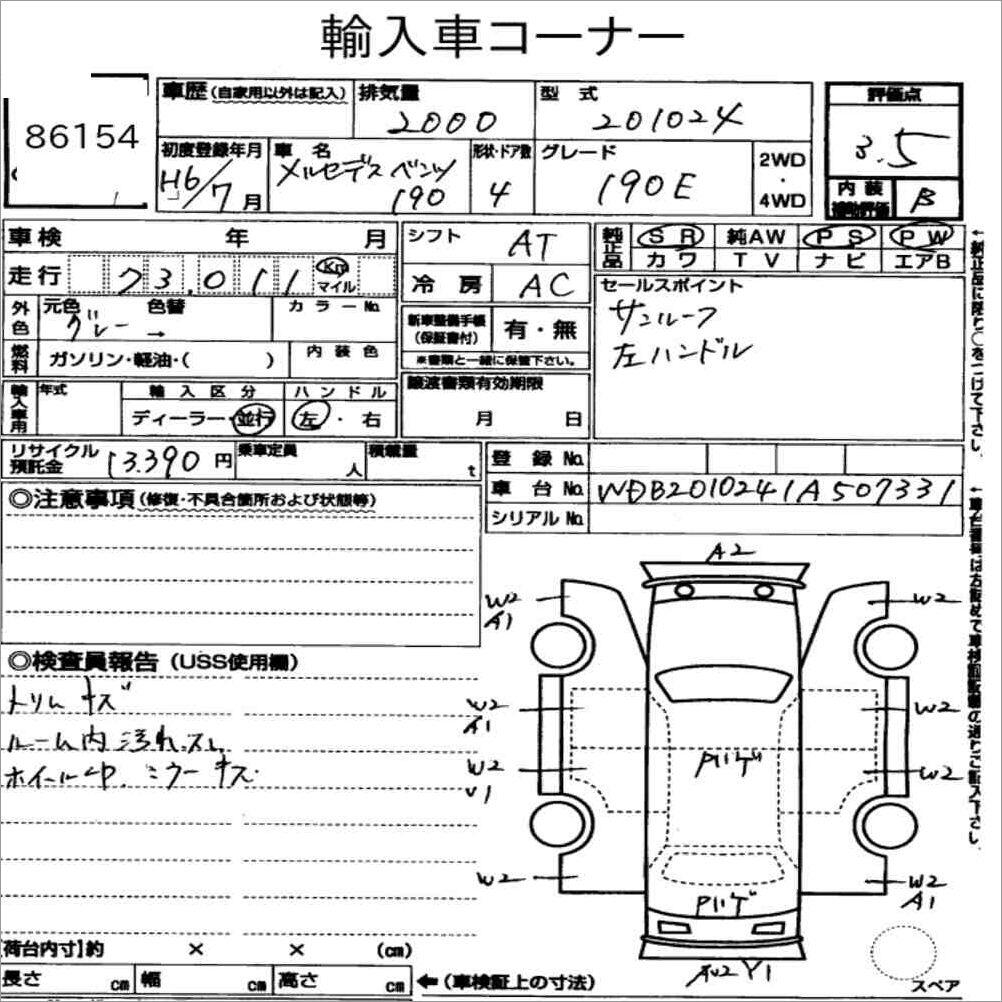 輸入車コーナー
86154
車歴(自家用以外は記入) 排気量 2000 型式 201024 評価点 3.5
初度登録年月 H6/7月 車名 メルセデスベンツ 190 形状・ドア数 4 グレード 190E 2WD・4WD 内装補助評価 B
車検 年 月
走行 73.011 Km マイル
外色 元色 グレー → 色替 カラーNo
燃料 ガソリン・軽油・( ) 内装色
輸入車用 年式 輸入区分 ディーラー・並行 ハンドル 左・右
シフト AT
冷房 AC
新車整備手帳(保証書付) 有・無
※書類と一緒に保管下さい。
譲渡書類有効期限
月 日
純正品 SR 純AW PS PW
カワ TV ナビ エアB
セールスポイント
サンルーフ
左ハンドル
リサイクル預託金 13.390円 乗車定員 人 積載量 t
登録No
車台No WDB2010241A507331
シリアルNo
◎注意事項(修復・不具合箇所および状態等)
◎検査員報告(USS使用欄)
トリムキズ
ルーム内汚れ.スレ
ホイール凹.ミラーキズ
A2
W2 A1
W2
W2 A1
W2
W2 U1
W2
W2
W2 A1
Pハゲ
Pハゲ
AU2 Y1
スペア
【荷台内寸】約 × × (cm)
長さ cm 幅 cm 高さ cm ←(車検証上の寸法)